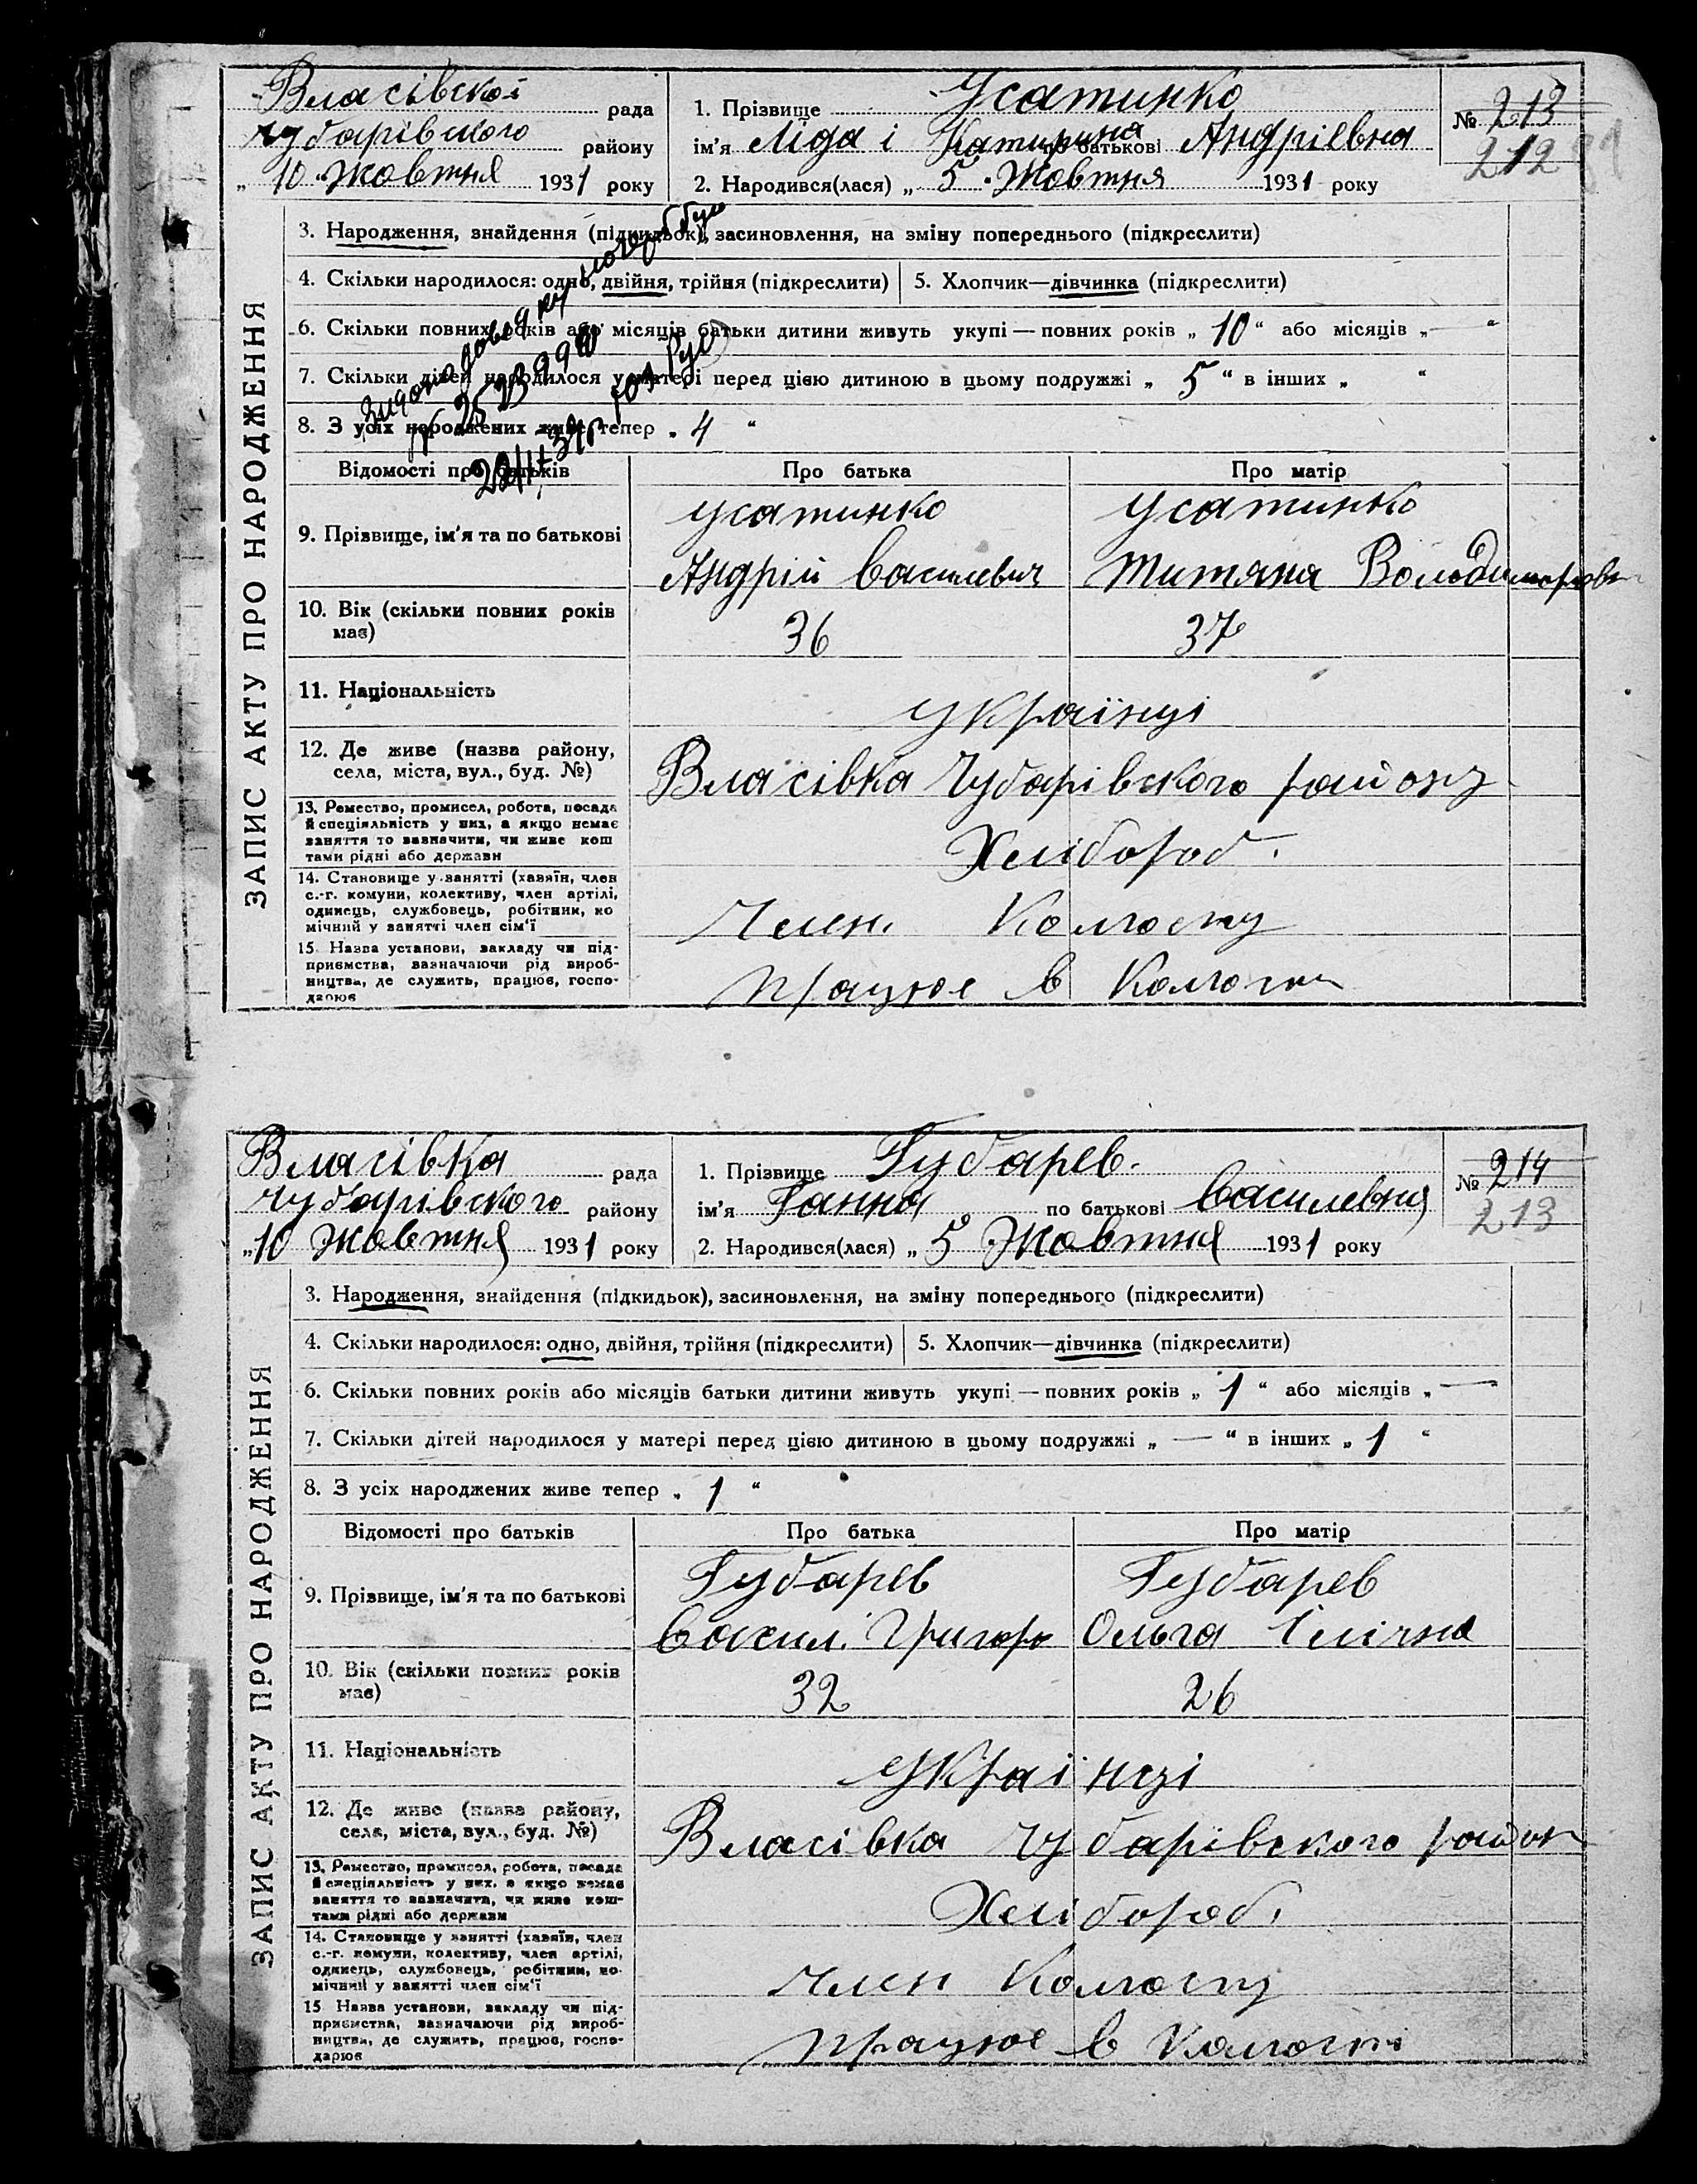 Власівської рада
Чубарівського району
„ 10 . Жовтня 1931 року
1. Прізвище Усатинко
ім'я Ліда і Катирина по батькові Андріевна
2. Народився(лася) „ 5 . Жовтня 1931 року
№ 213
212
ЗАПИС АКТУ ПРО НАРОДЖЕННЯ
3. Народження, знайдення (підкидьок), засиновлення, на зміну попереднього (підкреслити)
4. Скільки народилося: одно, двійня, трійня (підкреслити)
5. Хлопчик—дівчинка (підкреслити)
6. Скільки повних років або місяців батьки дитини живуть укупі — повних років „ 10 “ або місяців „ — “
7. Скільки дітей народилося у матері перед цією дитиною в цьому подружжі „ 5 “ в інших „ “
8. З усіх народжених живе тепер „ 4 “
Відомості про батьків
Про батька
Про матір
9. Прізвище, ім'я та по батькові
Усатинко
Андрій Василевич
Усатинко
Титяна
10. Вік (скільки повних років має)
36
37
11. Національність
Українці
12. Де живе (назва району,
села, міста, вул., буд. №)
Власівка Чубарівського району
13. Ремество, промисел, робота, посада
й спеціяльність у них, а якщо немає
заняття то зазначити, чи живе кош
тами рідні або держави
Хлібороб.
14. Становище у занятті (хазяїн, член
с.-г. комуни, колективу, член артілі,
одинець, службовець, робітник, по
мічний у занятті член сім'ї
Член. Колгоспу
15. Назва установи, закладу чи під-
приємства, зазначаючи рід вироб-
ництва, де служить, працює, госпо-
дарює
працює в Колгосп
Власівка рада
Чубарівського району
„ 10 Жовтня 1931 року
1. Прізвище Губарев.
ім'я Ганна по батькові Василевня
2. Народився(лася) „ 5 . Жовтня 1931 року
№ 214
213
ЗАПИС АКТУ ПРО НАРОДЖЕННЯ
3. Народження, знайдення (підкидьок), засиновлення, на зміну попереднього (підкреслити)
4. Скільки народилося: одно, двійня, трійня (підкреслити)
5. Хлопчик—дівчинка (підкреслити)
6. Скільки повних років або місяців батьки дитини живуть укупі — повних років „ 1 “ або місяців „ —
7. Скільки дітей народилося у матері перед цією дитиною в цьому подружжі „ — “ в інших „ 1 “
8. З усіх народжених живе тепер „ 1 “
Відомості про батьків
Про батька
Про матір
9. Прізвище, ім'я та по батькові
Губарев
Васил. Григоро
Губарев
Ольга Ілічна
10. Вік (скільки повних років має)
32
26
11. Національність
Українзі
12. Де живе (назва району,
села, міста, вул., буд. №)
Власівка Чубарівского район
13. Ремество, промисел, робота, посада
й спеціяльність у них, а якщо немає
заняття то зазначити, чи живе кош-
тами рідні або держави
Хлібороб.
14. Становище у занятті (хазяїн, член
с.-г. комуни, колективу, член артілі,
одинець, службовець, робітник, по-
мічний у занятті член сім'ї
Член Колгоспу
15. Назва установи, закладу чи під-
приємства, зазначаючи рід вироб-
ництва, де служить, працює, госпо-
дарює
працює в Колгоспі